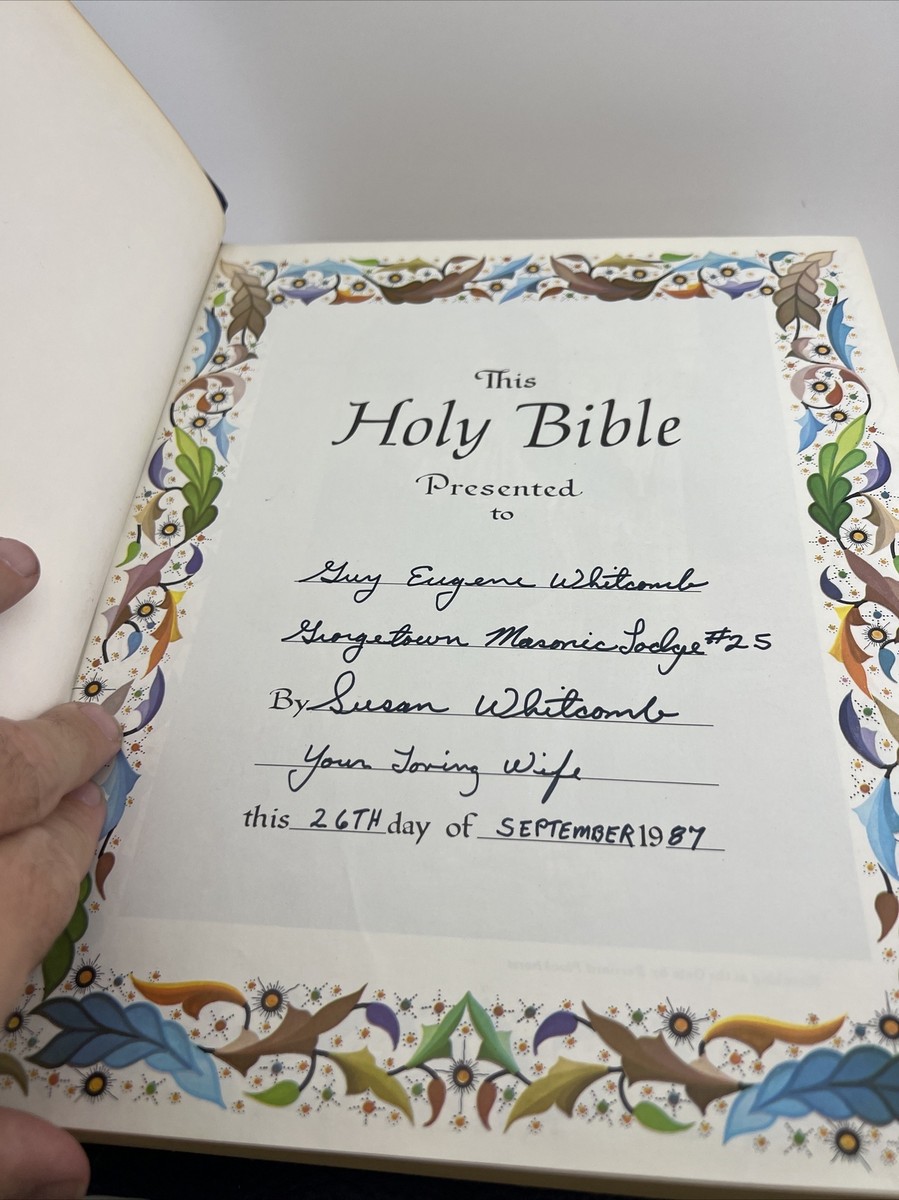 This
Holy Bible
Presented
to
Guy Eugene Whitcomb
Georgetown Masonic Lodge #25
By Susan Whitcomb
Your Loving Wife
this 26TH day of SEPTEMBER 1987